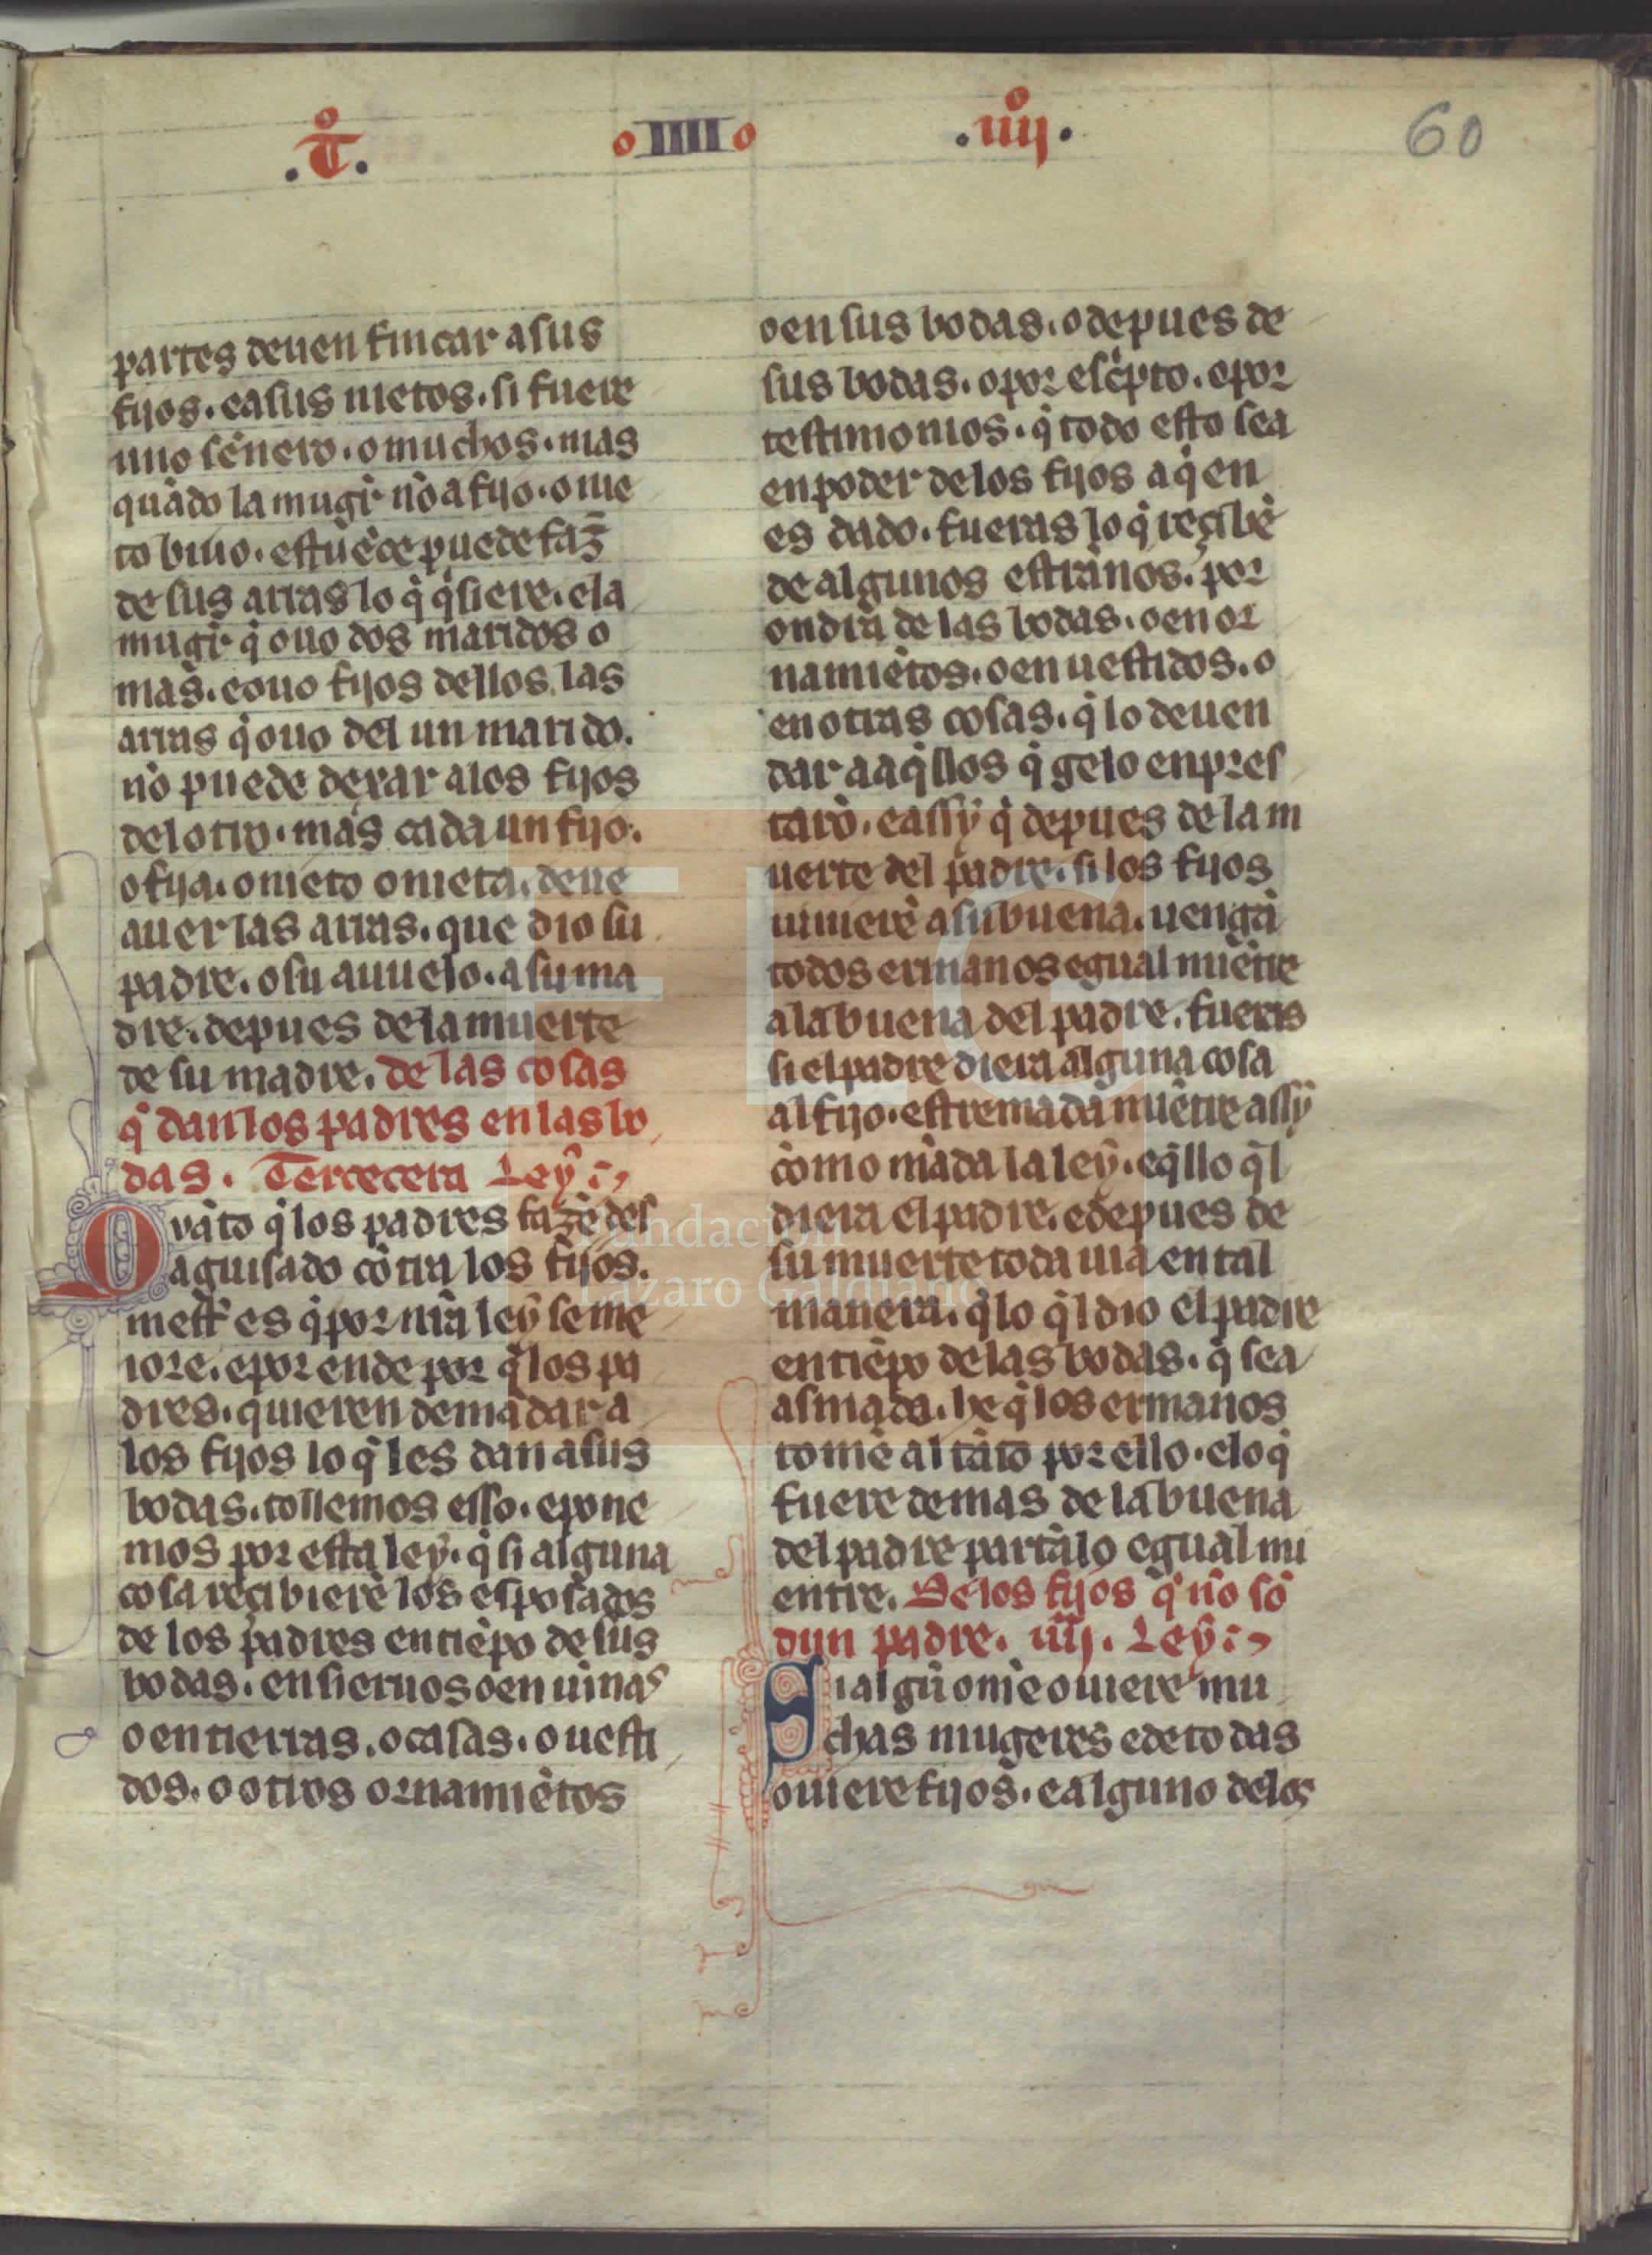 .T̊.
IIII
.iiij̊.
60
partes deuen fincar asus
fijos. easus nietos. si fuere
uno sẽnero. omuchos. mas
quãdo la mugr̃ nõ a fijo. o nie
to biuo. estuẽce puede faz̃
de sus arras lo q̃ q̃siere. ela
mugr̃ q̃ ouo dos maridos o
mas. eouo fijos dellos las
arras q̃ ouo del un marido.
nõ puede dexar alos fijos
del otro. mas cada un fijo.
o fija. o nieto o nieta. deue
auer las arras. que dio su
padre. o su auuelo. a su ma
dre. depues dela muerte
de su madre. de las cosas
q̃ dan los padres en las bo
das. Tercecera Ley
Quãto q̃ los padres fazẽ des
aguisado cõtra los fijos.
mest̃ es q̃ por nr̃a ley se me
iore. epor ende por q̃ los pa
dres. quieren demãdar a
los fijos lo q̃ les dan asus
bodas. tollemos esso. epone
mos por esta ley. q̃ si alguna
cosa reçibierẽ los esposados
de los padres en tiẽpo de sus
bodas. en sieruos o en uinas
o en tierras. o casas. o uesti
dos. o otros ornamiẽtos
o en sus bodas. o depues de
sus bodas. o por esc̃pto. epor
testimonios. q̃ todo esto sea
en poder delos fijos a q̃ en
es dado. fueras lo q̃ reçibẽ
de algunos estrãnos. por
ondrã de las bodas. o en or
namiẽtos. o en uestidos. o
en otras cosas. q̃ lo deuen
dar a aq̃llos q̃ gelo enpres
tarõ. eassy q̃ depues de la m
uerte del padre. si los fijos
uinierẽ a su buena. uengã
todos ermanos egual miẽtre
ala buena del padre. fueras
si el padre diera alguna cosa
al fijo. estremada miẽtre assy
cõmo mãda la ley. eq̃llo q̃l
diera el padre. edepues de
su muerte toda uia en tal
manera. q̃ lo q̃l dio el padre
en tiẽpo de las bodas. q̃ sea
asmada. he q̃ los ermanos
tomẽ al tãto por ello. elo q̃
fuere demas de la buena
del padre partãlo egual mi
entre. Delos fijos q̃ nõ sõ
dun padre. iiij. Ley
Si algũ om̃e ouiere mu
chas mugeres ede todas
ouiere fijos. ealguno delos
FLG
Fundación
Lázaro Galdiano